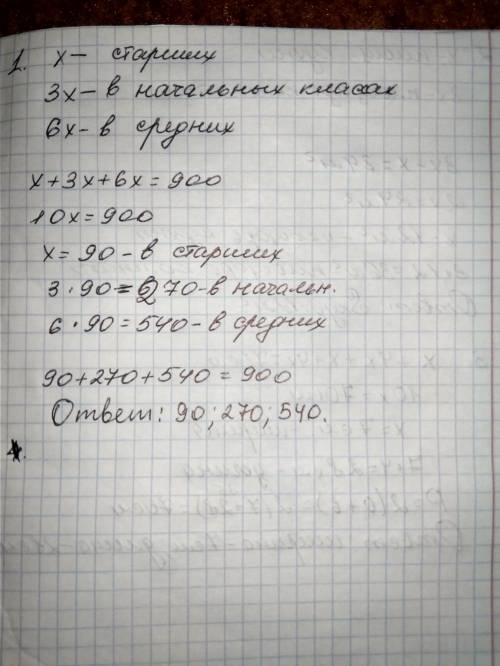 1. х – старших
3х – в начальных класах
6х – в средних
х+3х+6х=900
10х=900
х=90 – в старших
3·90=270-в начальн.
6·90=540-в средних
90+270+540=900
Ответ: 90; 270; 540.